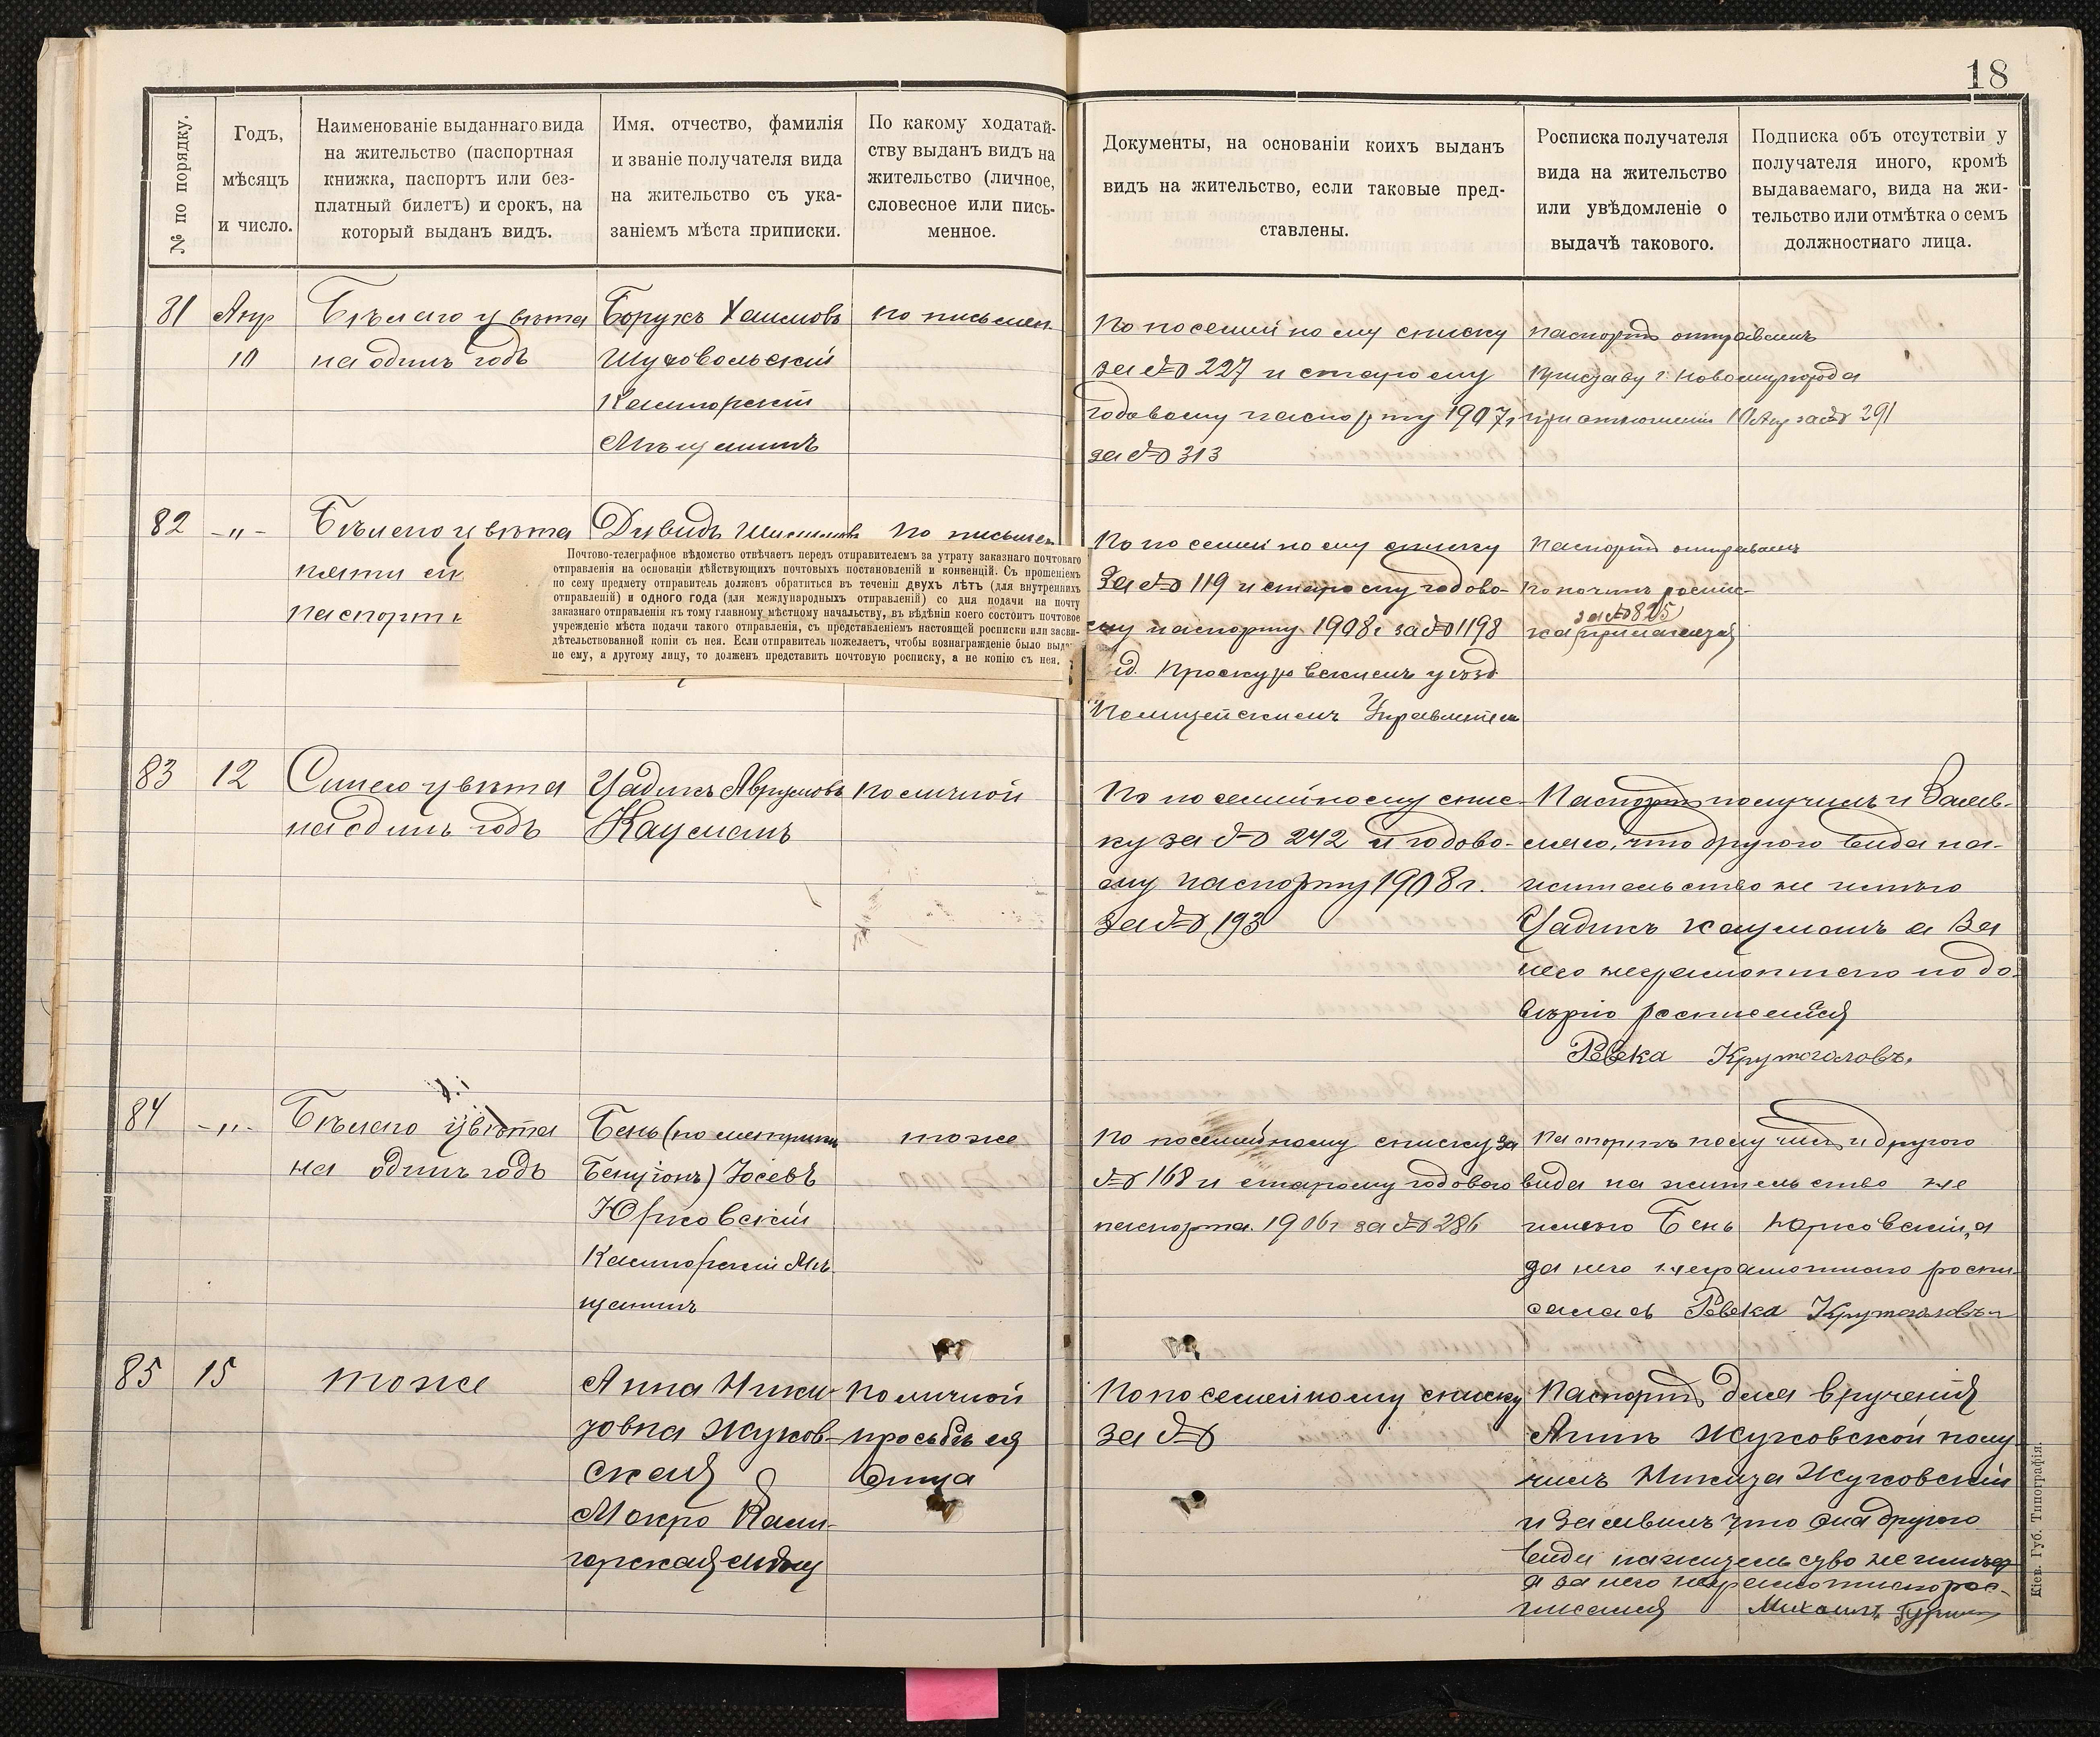 18
№ по порядку.
Годъ,
мѣсяцъ
и число.
Наименованіе выданнаго вида
на жительство (паспортная
книжка, паспортъ или без-
платный билетъ) и срокъ, на
который выданъ видъ.
Имя, отчество, фамилія
и званіе получателя вида
на жительство съ ука-
заніемъ мѣста приписки.
По какому ходатай-
ству выданъ видъ на
жительство (личное,
словесное или пись-
менное.
Документы, на основаніи коихъ выданъ
видъ на жительство, если таковые пред-
ставлены.
Росписка получателя
вида на жительство
или увѣдомленіе о
выдачѣ такового.
Подписка объ отсутствіи у
получателя иного, кромѣ
выдаваемаго, вида на жи-
тельство или отмѣтка о семъ
должностнаго лица.
81
Апр
10
Бѣлаго цвѣта
на одинъ годъ
Борухъ Хаимовъ
Шуховольскій
Кашторскій
Мѣщанинъ
по письмен.
По посемейному списку
за № 227 и старому
годовому паспорту 1907 г
за № 313
паспортъ отправленъ
Приставу г. Новомиргорода
при отношеніи 10 Апр за № 291
82
-„-
Бѣлаго цвѣта
пяти
паспорт
Давидъ
по письмен
По посемейному списку
За № 119 и старому годово-
му паспорту 1908 г за № 1198
Проскуровскимъ уѣзд
Полицейскимъ Управленіем
паспортъ отправленъ
по почтѣ роспис-
за № 825
ка прилагается
Почтово-телеграфное вѣдомство отвѣчаетъ передъ отправителемъ за утрату заказнаго почтоваго
отправленія на основаніи дѣйствующихъ почтовыхъ постановленій и конвенцій. Съ прошеніемъ
по сему предмету отправитель долженъ обратиться въ теченіи двухъ лѣтъ (для внутреннихъ
отправленій) и одного года (для международныхъ отправленій) со дня подачи на почту
заказнаго отправленія къ тому главному мѣстному начальству, въ вѣдѣніи коего состоитъ почтовое
учрежденіе мѣста подачи такого отправленія, съ представленіемъ настоящей росписки или засви-
дѣтельствованной копіи съ нея. Если отправитель пожелаетъ, чтобы вознагражденіе было выда
не ему, а другому лицу, то долженъ представить почтовую росписку, а не копію съ нея.
83
12
Синего цвѣта
на одинъ годъ
Цадикъ Аврумовъ
Кауманъ
по личной
По посемейному спис-
ку за № 242 и годово-
му паспорту 1908 г.
за № 193
Паспортъ получилъ и Заяв-
ляю, что другого вида на-
жительство не имѣю
Цадикъ Кауманъ а За
него неграмотнаго по до-
вѣрію росписался
Ревека Крутоголовъ.
84
-„-
Бѣлаго цвѣта
на одинъ годъ
Бень (по метрики
Бенціонъ) Іосевъ
Юрковскій
Кашторскій Мѣ-
щанинъ
тоже
По посемейному списку за
№ 168 и старому годового
паспорта 1906 г за № 286
Паспортъ получилъ и другого
вида на жительство не
имѣю Бень Юрковскій, а
за него неграмотного роспи-
салась Ревека Крутоголовъ
85
15
тоже
Анна Ники-
товна Жуков-
ская
Мокро Кали-
горская
По личной
просьбѣ ея
Отца
По посемейному списку
за №
Паспортъ для врученія
Аннѣ Жуковской полу
чилъ Никита Жуковскій
и Заявилъ что она другого
вида на жительство не имѣет
а за него неграмотного рос-
писался Михаилъ
Кіев. Губ. Типографія.